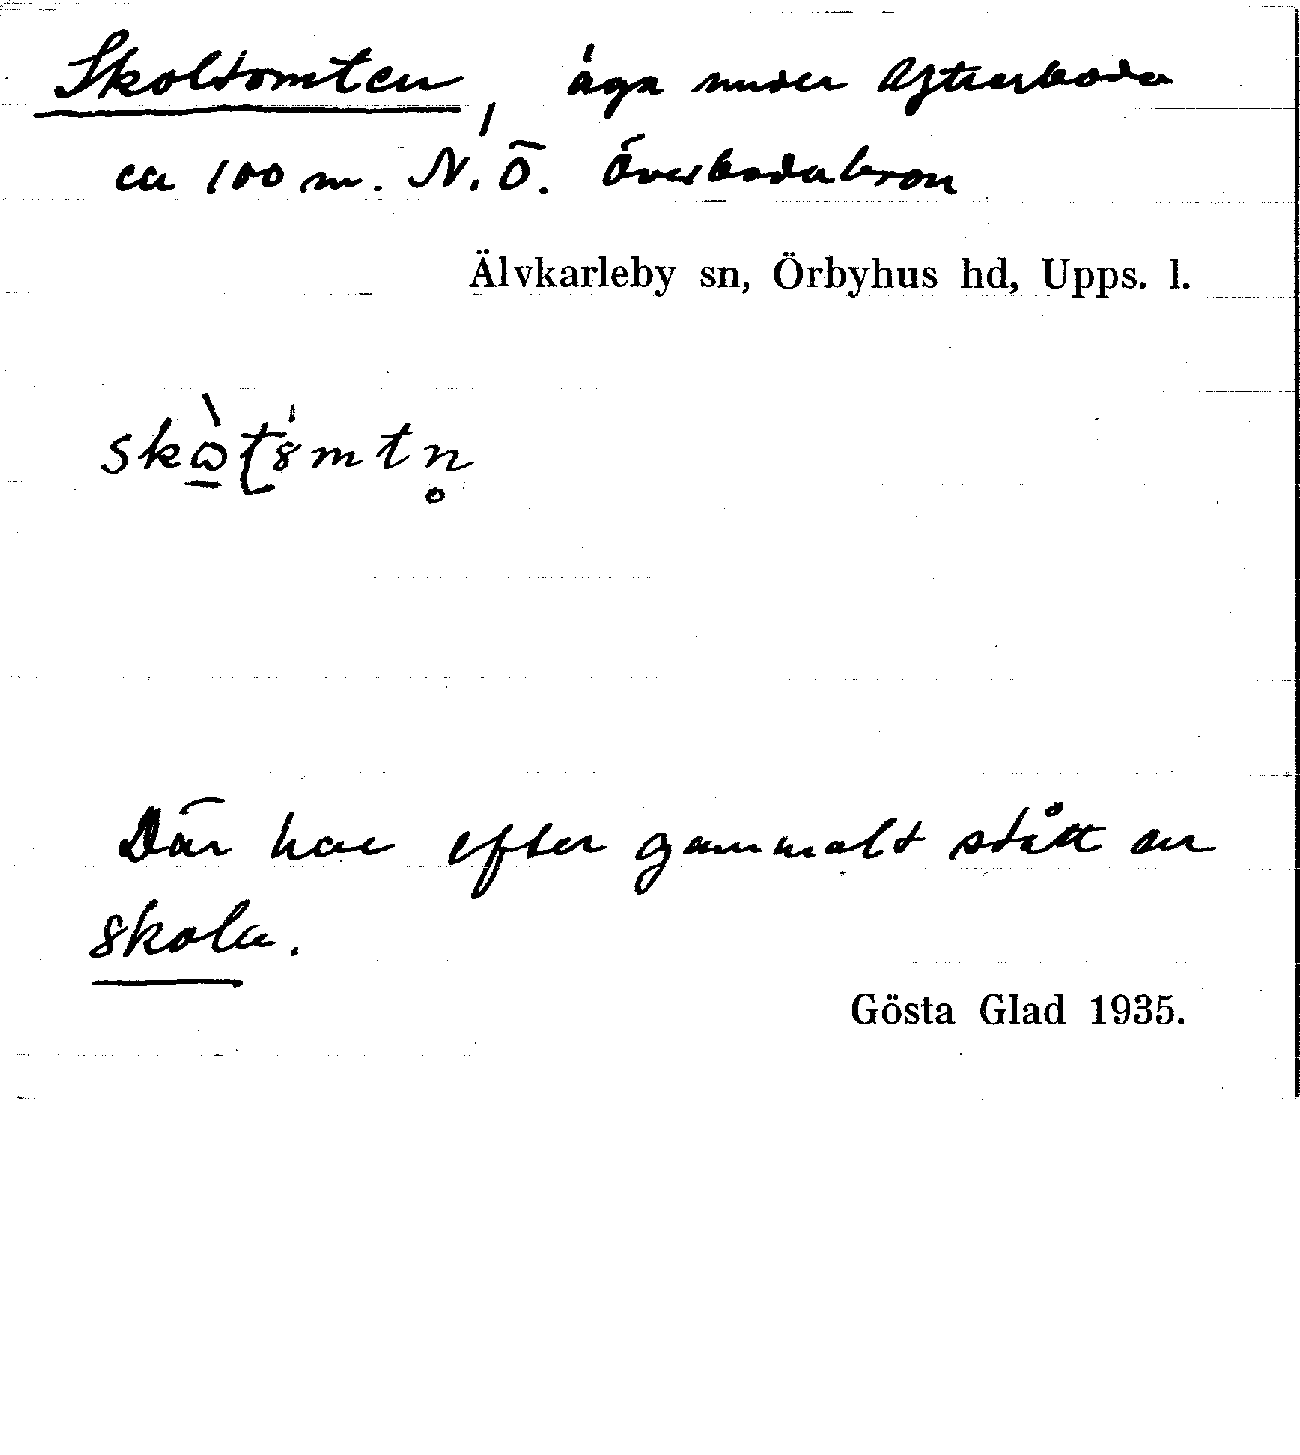 Skoltomten, äga under Aftrerboda
ca 100 m. N.Ö. Överbodabron
Älvkarleby sn, Örbyhus hd, Upps. l.
Där har efter gammalt stått en
skola.
Gösta Glad 1935.